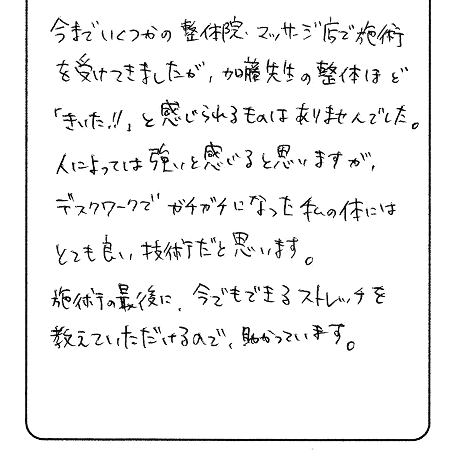 今までいくつかの整体院、マッサージ店で施術
を受けてきましたが、加藤先生の整体ほど
「きいた!!」と感じられるものはありませんでした。
人によっては強いと感じると思いますが、
デスクワークでガチガチになった私の体には
とても良い技術だと思います。
施術の最後に、今でもできるストレッチを
教えていただけるので、助かっています。